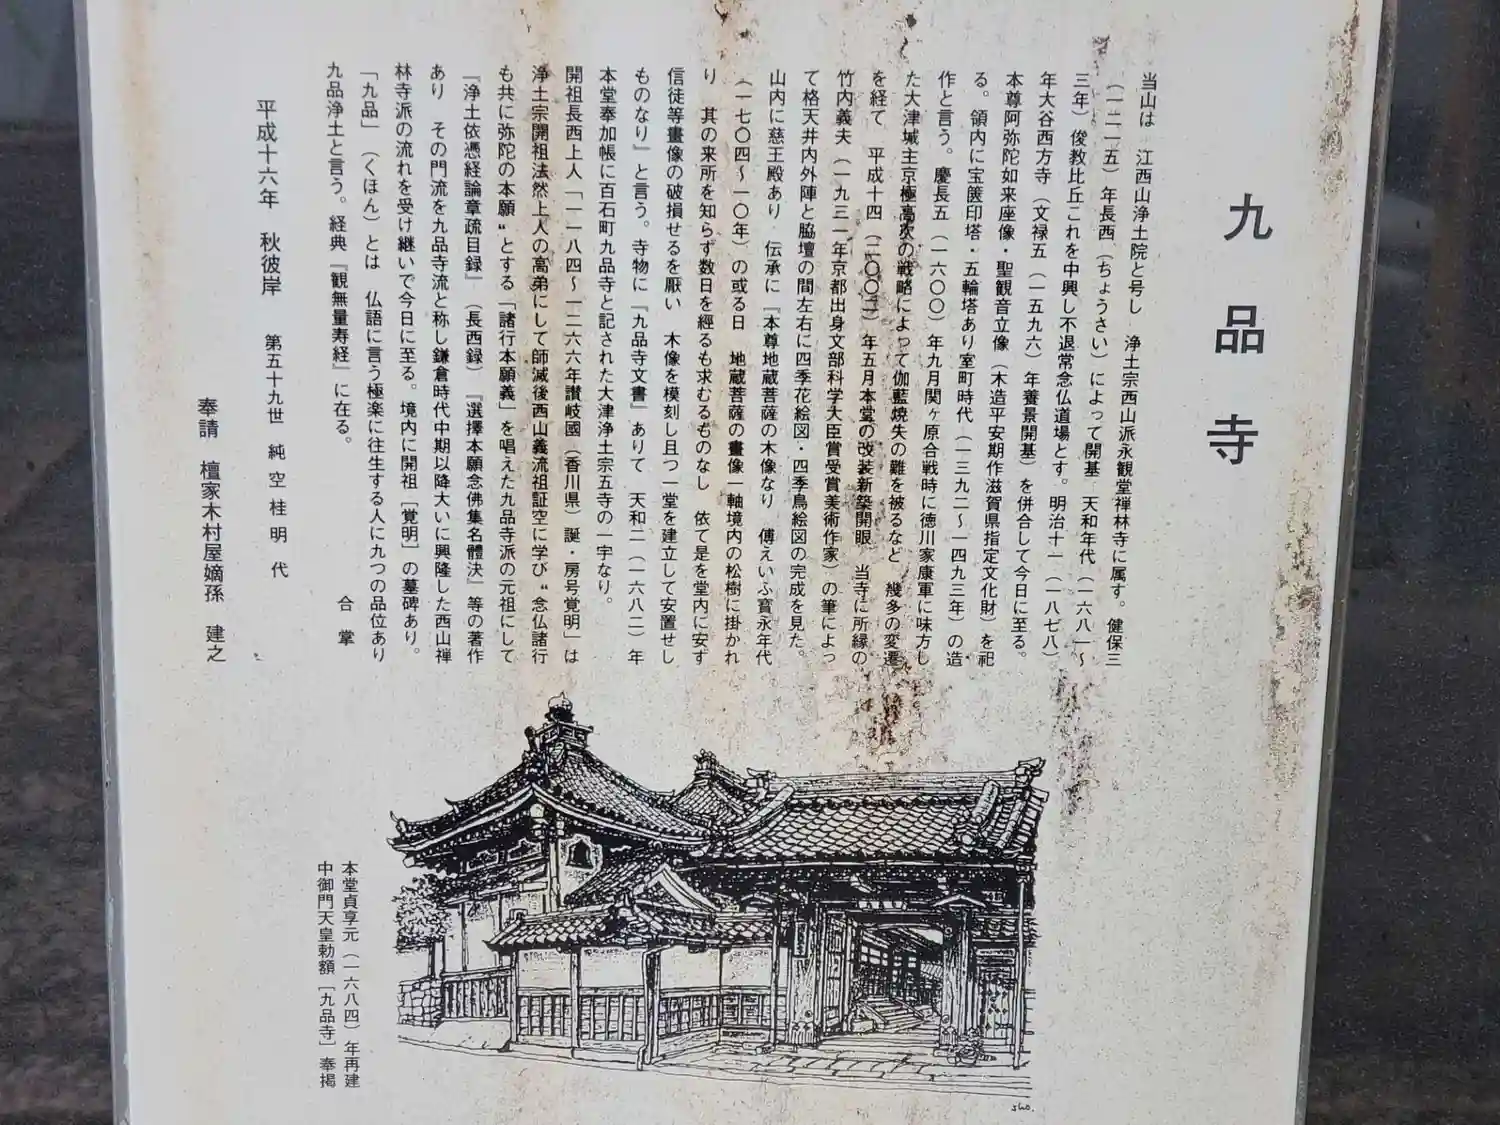 九品寺
当山は 江西山浄土院と号し 浄土宗西山派永観堂禅林寺に属す。健保三
(一二一五)年長西(ちょうさい)によって開基 天和年代(一六八一~
三年)俊教比丘これを中興し不退常念仏道場とす。明治十一(一八七八)
年大谷西方寺(文禄五(一五九六)年養景開基)を併合して今日に至る。
本尊阿弥陀如来座像・聖観音立像(木造平安期作滋賀県指定文化財)を祀
る。領内に宝篋印塔・五輪塔あり室町時代(一三九二~一四九三年)の造
作と言う。慶長五(一六〇〇)年九月関ヶ原合戦時に徳川家康軍に味方し
た大津城主京極高次の戦略によって伽藍焼失の難を被るなど 幾多の変遷
を経て 平成十四(二〇〇二)年五月本堂の改装新築開眼 当寺に所縁の
竹内義夫(一九三一年京都出身文部科学大臣賞受賞美術作家)の筆によっ
て格天井内外陣と脇壇の間左右に四季花絵図・四季鳥絵図の完成を見た。
山内に慈王殿あり 伝承に『本尊地蔵菩薩の木像なり 傅えいふ寳永年代
(一七〇四~一〇年)の或る日 地蔵菩薩の畫像一軸境内の松樹に掛かれ
り 其の来所を知らず数日を經るも求むるものなし 依て是を堂内に安ず
信徒等畫像の破損せるを厭い 木像を模刻し且つ一堂を建立して安置せし
ものなり』と言う。寺物に『九品寺文書』ありて 天和二(一六八二)年
本堂奉加帳に百石町九品寺と記された大津浄土宗五寺の一字なり。
開祖長西上人「一一八四~一二六六年讃岐國(香川県)誕・房号覚明」は
浄土宗開祖法然上人の高弟にして師滅後西山義流祖証空に学び“念仏諸行
も共に弥陀の本願“とする「諸行本願義」を唱えた九品寺派の元祖にして
『浄土依憑経論章疏目録』(長西録)『選擇本願念佛集名體決』等の著作
あり その門流を九品寺流と称し鎌倉時代中期以降大いに興隆した西山禅
林寺派の流れを受け継いで今日に至る。境内に開祖[覚明]の墓碑あり。
「九品」(くほん)とは 仏語に言う極楽に往生する人に九つの品位あり
九品浄土と言う。経典『観無量寿経』に在る。 合掌
平成十六年 秋彼岸 第五十九世 純空桂明 代
奉請 檀家木村屋嫡孫 建之
本堂貞享元(一六八四)年再建
中御門天皇勅額[九品寺]奉掲
sho.